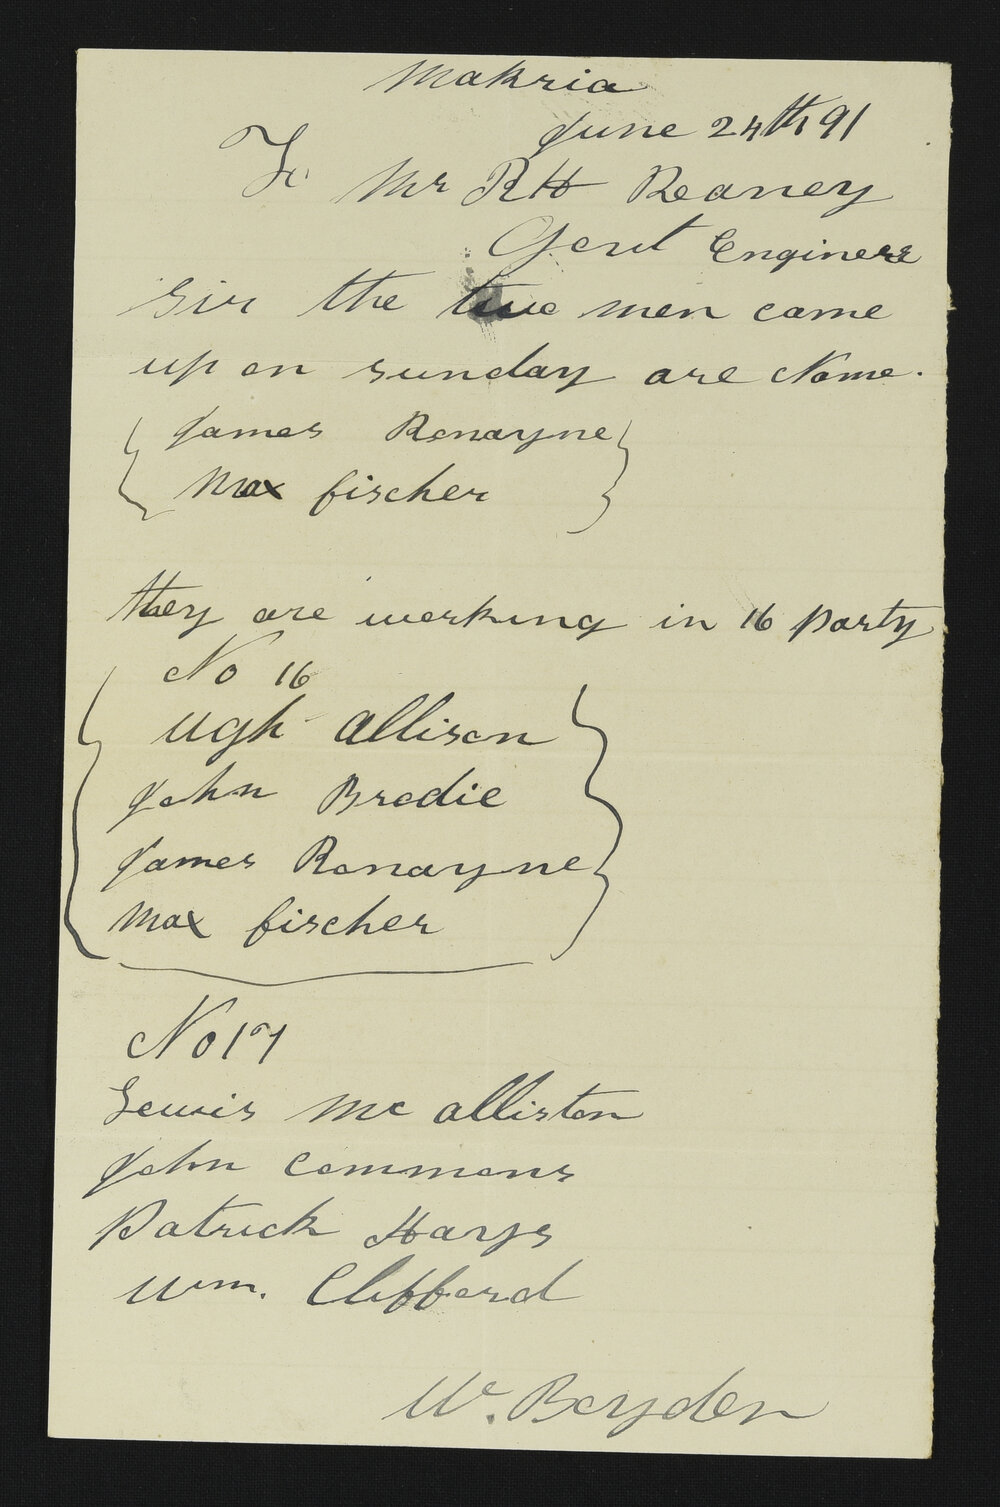 Makria
June 24th 91
To Mr RH Reaney
Govt Engineer
Sir the two men came
up on sunday are Name.
James Ronayne
Max fischer
they are working in 16 Party
No 16
Ugh Allison
John Brodie
James Ronayne
Max fischer
No 17
Lewis Mc alliston
John Commons
Patrick Hays
Wm. Clifford
W. Boyden